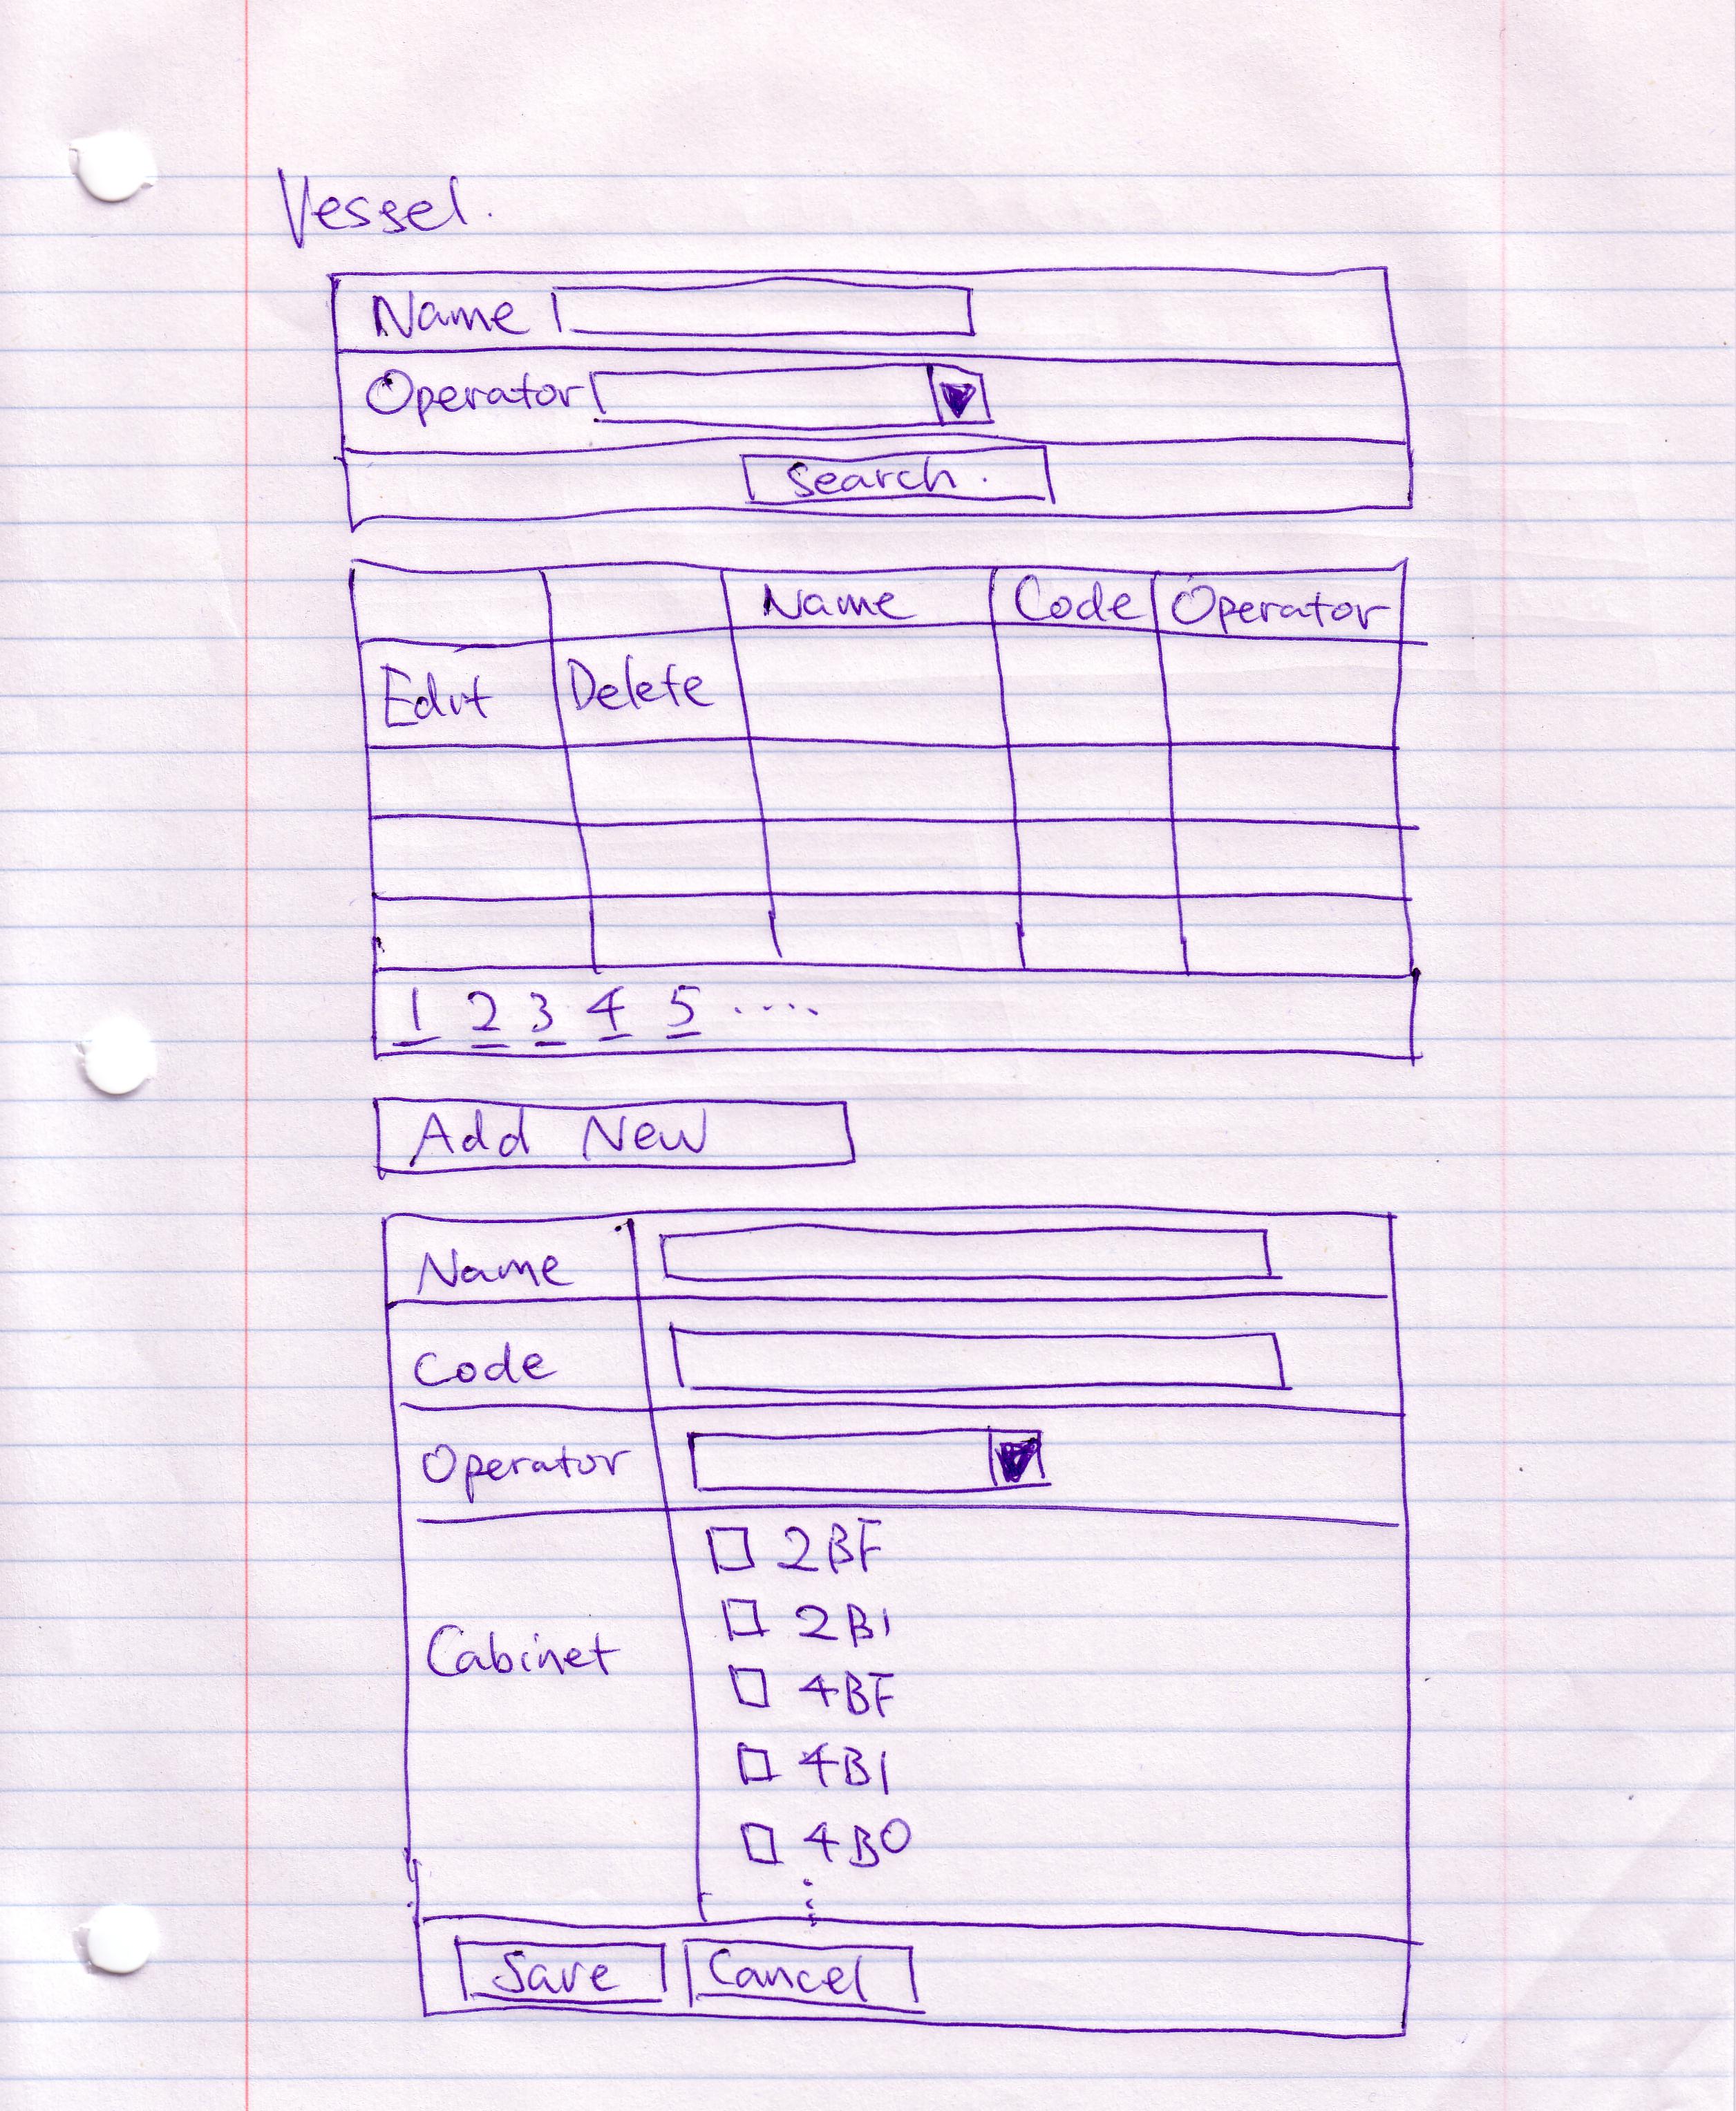 Vessel.
Name
Operator
Search.
Name Code Operator
Edit Delete
1 2 3 4 5 ....
Add New
Name
Code
Operator
2BF
2B1
Cabinet
4BF
4B1
4BO
Save Cancel